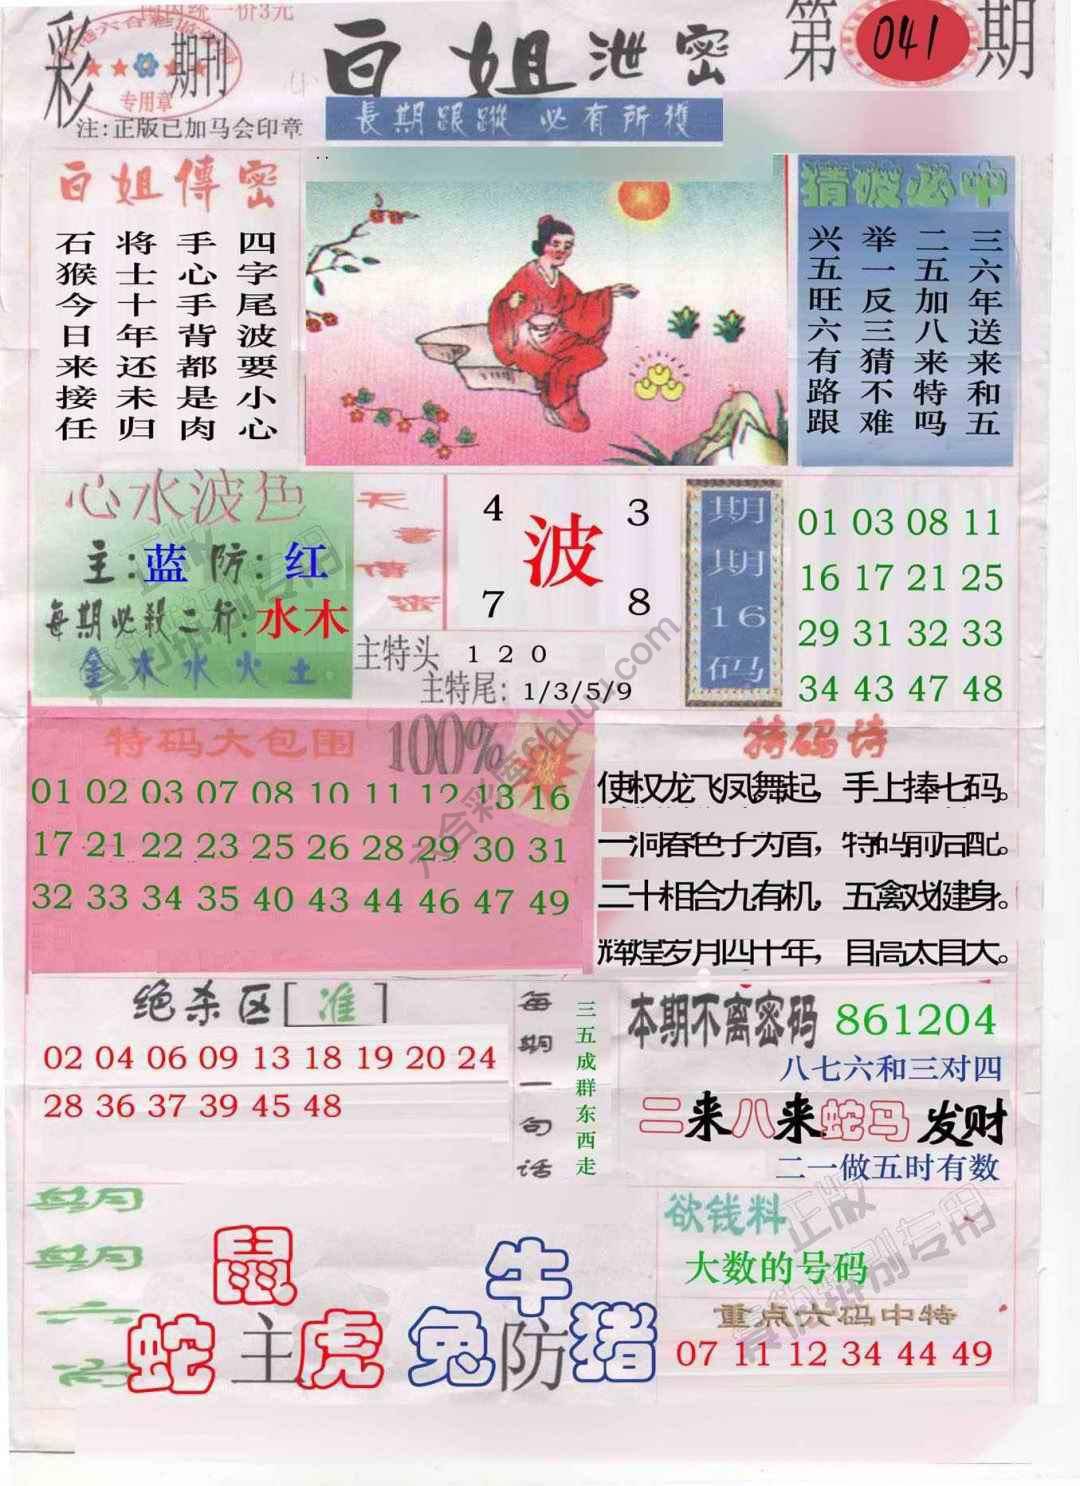 国内统一价3元
彩
期刊
专用章
注:正版已加马会印章
白姐泄密
長期跟蹤 必有所獲
第041期
白姐傳密
四字尾波要小心
手心手背都是肉
将士十年还未归
石猴今日来接任
猜波必中
三六年送来和五
二五加八来特吗
举一反三猜不难
兴五旺六有路跟
心水波色
主:蓝 防:红
每期必殺二行:水木
金木水火土
天書傳密
4 3
波
7 8
主特头 1 2 0
主特尾: 1/3/5/9
期期16码
01 03 08 11
16 17 21 25
29 31 32 33
34 43 47 48
特码大包围 100%
01 02 03 07 08 10 11 12 13 16
17 21 22 23 25 26 28 29 30 31
32 33 34 35 40 43 44 46 47 49
特码诗
使权龙飞凤舞起，手上捧七码。
一洞春色子为首，特码前后配。
二十相合九有机，五禽戏健身。
辉煌岁月四十年，目高太目大。
绝杀区[准]
02 04 06 09 13 18 19 20 24
28 36 37 39 45 48
每期一句话
三五成群东西走
本期不离密码 861204
八七六和三对四
二来八来蛇马 发财
二一做五时有数
鼠
蛇主虎
牛
兔防猪
欲钱料
大数的号码
重点六码中特
07 11 12 34 44 49